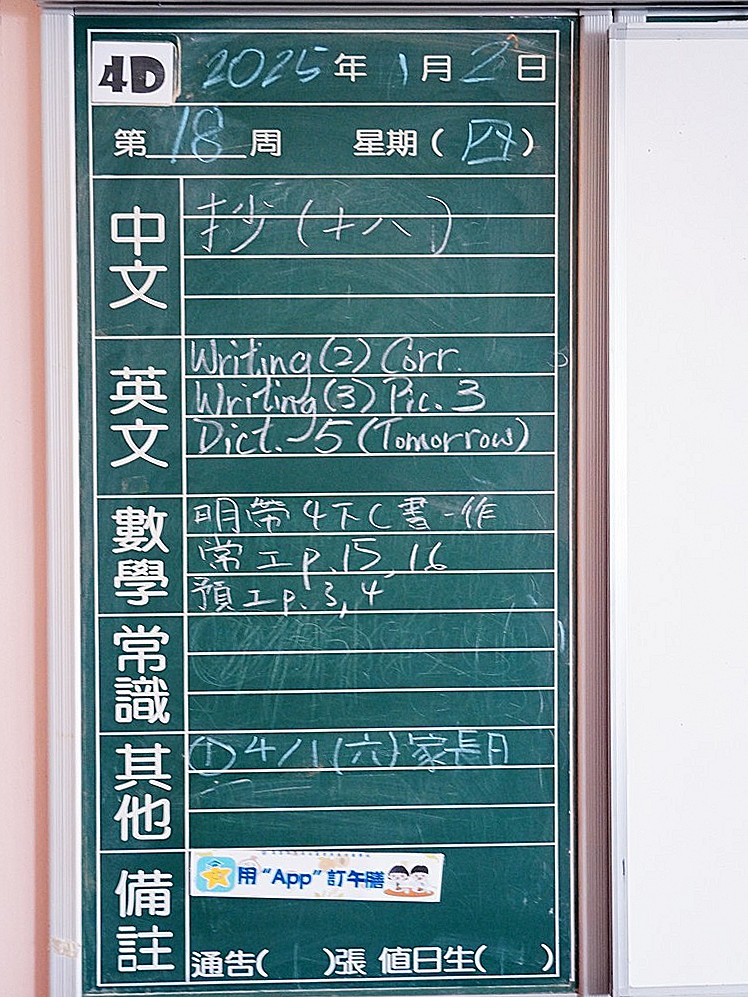 4D 2025年1月2日
第18周 星期(四)
中文
抄(十八)
英文
Writing(2) Corr.
Writing(3) Pic. 3
Dict. 5 (Tomorrow)
數學
明帶4下C書、作
常工p.15, 16
預工p.3, 4
常識
其他
① 4/1(六)家長日
備註
用“App”訂午膳
通告( )張 值日生( )